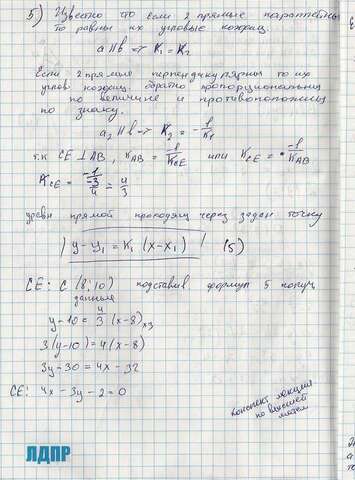 5) Известно что если 2 прямые параллельны
то равны их угловые коэффиц.
a ∥ b → K₁ = K₂
Если 2 прямые перпендикулярны то их
углов. коэффиц. обратно пропорциональны
по величине и противоположны
по знаку.
a ∥ b → K₂ = -1/K₁
т.к CE ⊥ AB, K_AB = -1/K_CE или K_CE = -1/K_AB
K_CE = -1/(-3/4) = 4/3
уравн прямой проходящ через задан точку
y - y₁ = K₁ (x - x₁) (5)
CE: C (8; 10) подставив формул 5 получ
данные
y - 10 = 4/3 (x - 8) ×3
3(y - 10) = 4(x - 8)
3y - 30 = 4x - 32
CE: 4x - 3y - 2 = 0
Конспект лекции
по высшей
матем
ЛДПР